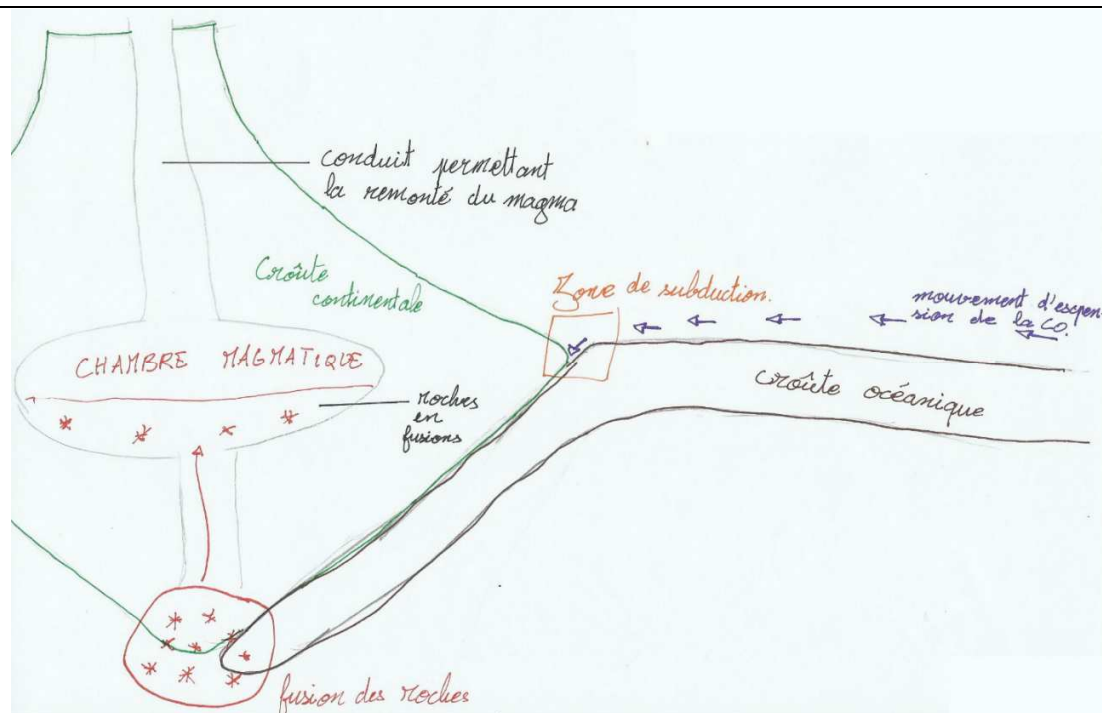 conduit permettant
la remonté du magma
Croûte
continentale
Zone de subduction.
mouvement d'espen-
sion de la CO.
CHAMBRE MAGMATIQUE
croûte océanique
roches
en
fusions
fusion des roches